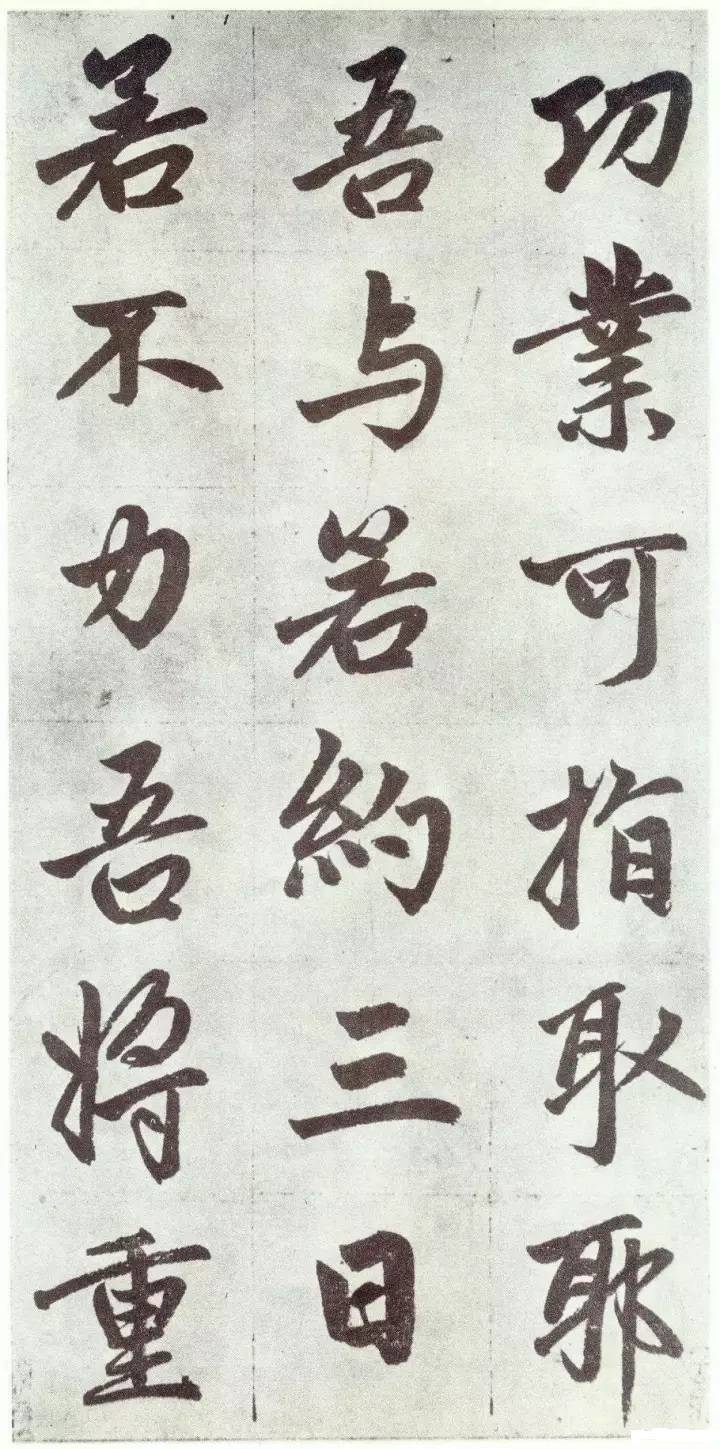 功業可指取耶
吾与若約三日
若不力吾將重